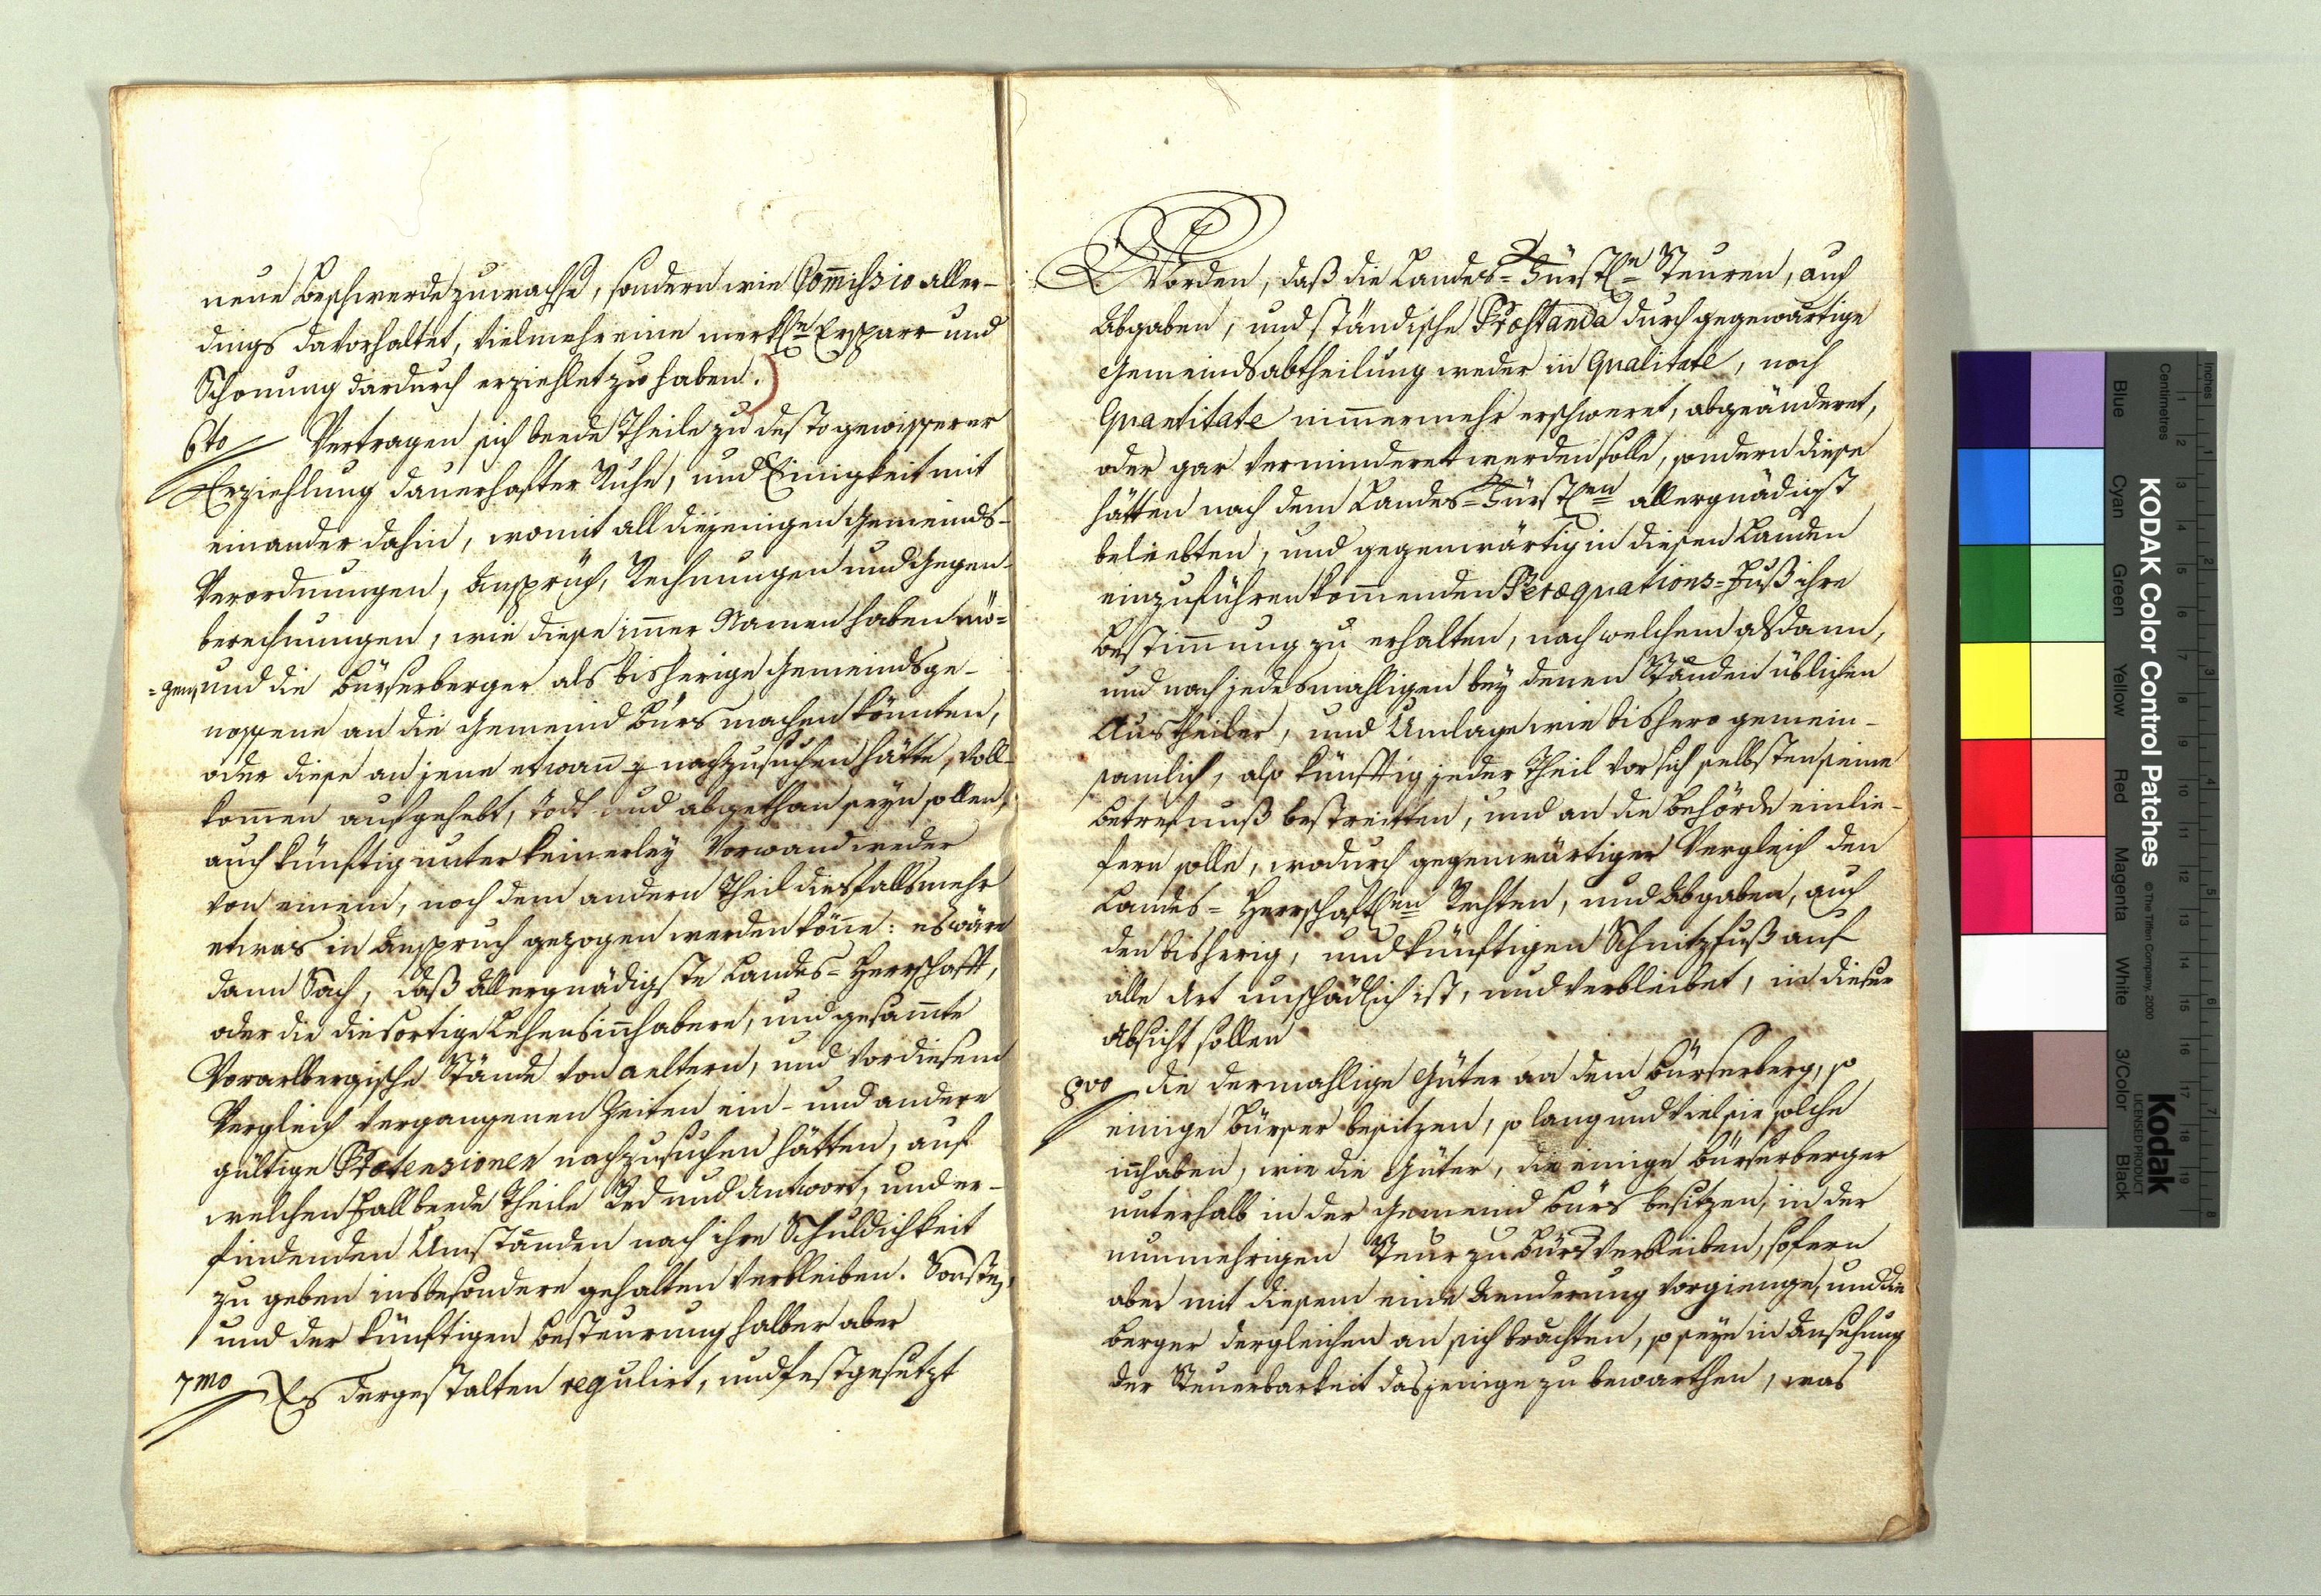 neue Beschwerde zuwachse, sondern wie Commissio aller-
dings davorhaltet, vielmehr eine merkl[iche] Ersparr und
Schonung dardurch erziehlet zu haben.
6to Vertragen sich beede Theile zu desto gewisserer
Erziehlung dauerhafter Ruhe, und Einigkeit mit
einander dahin, womit all diejenigen Gemeinds-
Verordnungen, Ansprüch, Rechnungen und Gegen-
berechnungen, wie diese immer Namen haben mö-
=gen, und die Bürserberger als bisherige Gemeindsge-
nossene an die Gemeind Bürs machen könnten,
oder diese an jene etwann nachzusuchen hätte, voll-
kommen aufgehebt, todt und abgethan seyn sollen,
auch künftig unter keinerley Vorwand weder
von einem, noch dem andern Theil diesfalls mehr
etwas in Anspruch gezogen werden könne: es wäre
dann Sach, daß allergnädigste Landes-Herrschafft,
oder die diesortige Lehensinnhabere, und gesammte
Vorarlbergische Stände von aeltern, und vor diesem
Vergleich vergangenen Zeiten ein- und andere
gültige Praetensionen nachzusuchen hätten, auf
welchen Fall beede Theile Red und Antwort, und er-
findenden Umständen nach ihre Schuldichkeit
zu geben insbesondere gehalten verbleiben. Sonsten,
und der künftigen Besteurung halber aber
7mo Es dergestalten regulirt, und festgesetzt
Worden, daß die Landes-Fürstl[iche]n Steuren, auch
Abgaben, und ständische Praestanda durch gegenwärtige
Gemeindsabtheilung weder in Qualitate, noch
Quantitate nimmermehr erschweret, abgeänderet,
oder gar verminderet werden solle, sondern diese
hätten nach dem Landes-Fürstl[ich]en allergnädigst
beliebten, und gegenwärtig in diesen Landen
einzuführen kommenden Peraequations-Fuß ihre
Bestimmung zu erhalten, nach welchem alsdann,
und nach jedesmahligen bey denen Ständen üblichen
Austheiler, und Umlage wie bishero gemein-
samlich, also künftig jeder Theil vor sich selbsten seine
Betrefnuß bestreitten, und an die Behörde einlie-
fern solle, wodurch gegenwärtiger Vergleich den
Landes-Herrschaftl[ich]en Rechten, und Abgaben, auch
den bisherig, und künftigen Schnitzfuß auf
alle Art unschädlich ist, und verbleibet, in dieser
Absicht sollen
8vo die dermahlige Güter an dem Bürserberg, so
einige Bürser besitzen, so lang und viel sie solche
innhaben, wie die Güter, die einige Bürserberger
unterhalb in der Gemeind Bürs besitzen, in der
nunmehrigen Steur zu Bürs verbleiben, sofern
aber mit diesem eine Aenderung vorgienge, und die
Berger dergleichen an sich brächten, so seye in Ansehung
der Steuerbarkeit dasjenige zu bewarthen, was
KODAK Color Control Patches
© The Tiffen Company, 2000
Kodak
LICENSED PRODUCT
Blue
Cyan
Green
Yellow
Red
Magenta
White
3/Color
Black
Inches
Centimetres